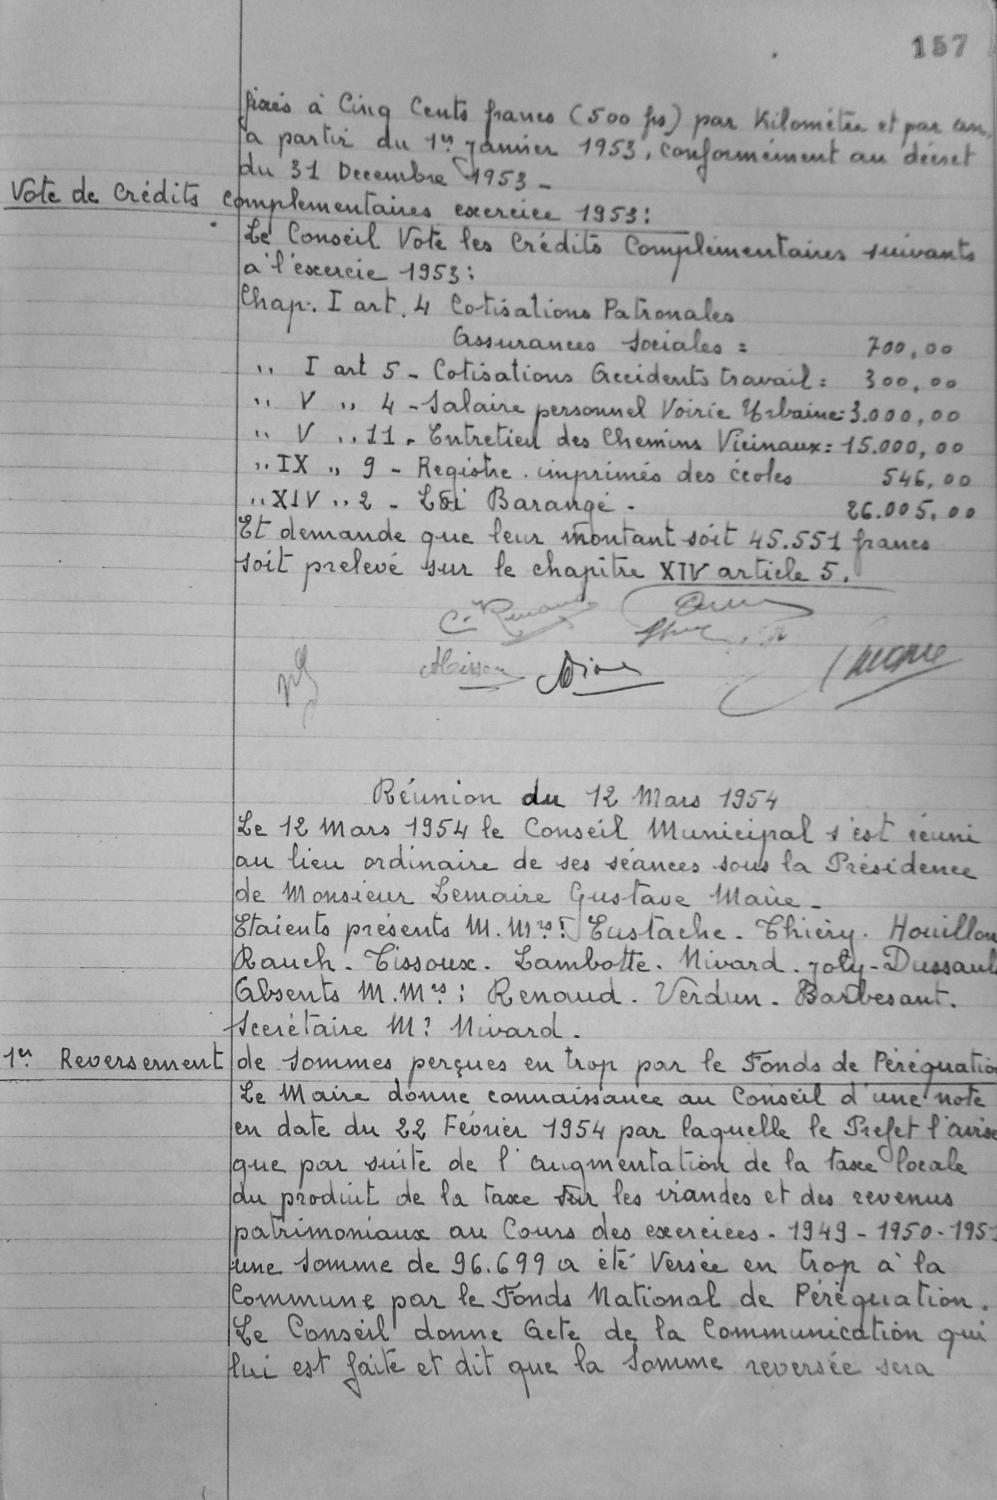 157
fixés à Cinq Cents francs (500 frs) par Kilomètre et par an,
à partir du 1er Janvier 1953, conformément au décret
du 31 Decembre 1953 -
Vote de Crédits complementaires exercice 1953:
Le Conseil Vote les Crédits Complémentaires suivants
à l'exercie 1953:
Chap. I art. 4 Cotisations Patronales
Assurances Sociales = 700,00
" I art 5 - Cotisations Accidents travail = 300,00
" V " 4 - Salaire personnel Voirie Urbaine = 3.000,00
" V " 11 - Entretien des Chemins Vicinaux = 15.000,00
" IX " 9 - Registre imprimés des écoles 546,00
" XIV " 2 - Loi Barangé - 26.005,00
Et demande que leur montant soit 45.551 francs
soit prelevé sur le chapitre XIV article 5.
C. Renaud
Réunion du 12 Mars 1954
Le 12 Mars 1954 le Conseil Municipal s'est réuni
au lieu ordinaire de ses séances sous la Présidence
de Monsieur Lemaire Gustave Maire -
Etaients présents M.Mrs: Eustache - Thiéry. Houillon
Rauch - Tissoux. Lambotte. Nivard. Joly - Dussault
Absents M.Mrs: Renaud. Verdun - Barbesant.
Secrétaire Mr Nivard.
1er Reversement de Sommes perçues en trop par le Fonds de Péréquation
Le Maire donne connaissance au Conseil d'une note
en date du 22 Février 1954 par laquelle le Prefet l'avise
que par suite de l'augmentation de la taxe locale
du produit de la taxe sur les viandes et des revenus
patrimoniaux au Cours des exercices - 1949 - 1950 - 1951
une Somme de 96.699 a été Versée en trop à la
Commune par le Fonds National de Péréquation.
Le Conseil donne Acte de la Communication qui
lui est faite et dit que la Somme reversée sera